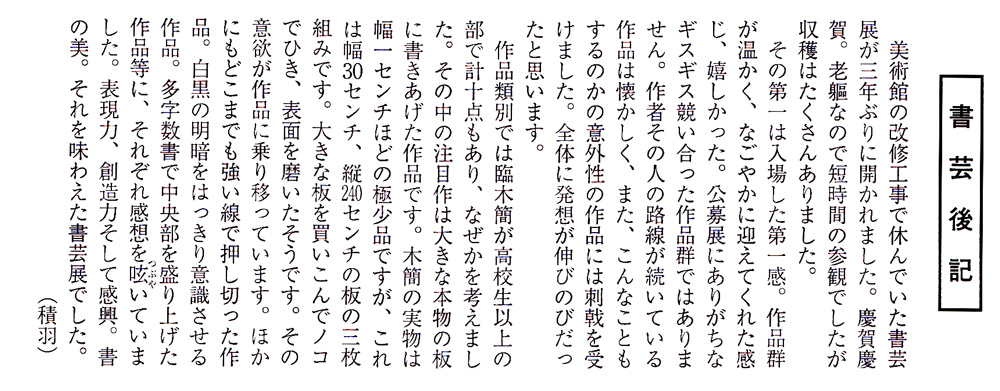 書芸後記
美術館の改修工事で休んでいた書芸
展が三年ぶりに開かれました。慶賀慶
賀。老軀なので短時間の参観でしたが
収穫はたくさんありました。
その第一は入場した第一感。作品群
が温かく、なごやかに迎えてくれた感
じ、嬉しかった。公募展にありがちな
ギスギス競い合った作品群ではありま
せん。作者その人の路線が続いている
作品は懐かしく、また、こんなことも
するのかの意外性の作品には刺戟を受
けました。全体に発想が伸びのびだっ
たと思います。
作品類別では臨木簡が高校生以上の
部で計十点もあり、なぜかを考えまし
た。その中の注目作は大きな本物の板
に書きあげた作品です。木簡の実物は
幅一センチほどの極少品ですが、これ
は幅30センチ、縦240センチの板の三枚
組みです。大きな板を買いこんでノコ
でひき、表面を磨いたそうです。その
意欲が作品に乗り移っています。ほか
にもどこまでも強い線で押し切った作
品。白黒の明暗をはっきり意識させる
作品。多字数書で中央部を盛り上げた
作品等に、それぞれ感想を呟つぶやいていま
した。表現力、創造力そして感興。書
の美。それを味わえた書芸展でした。
（積羽）